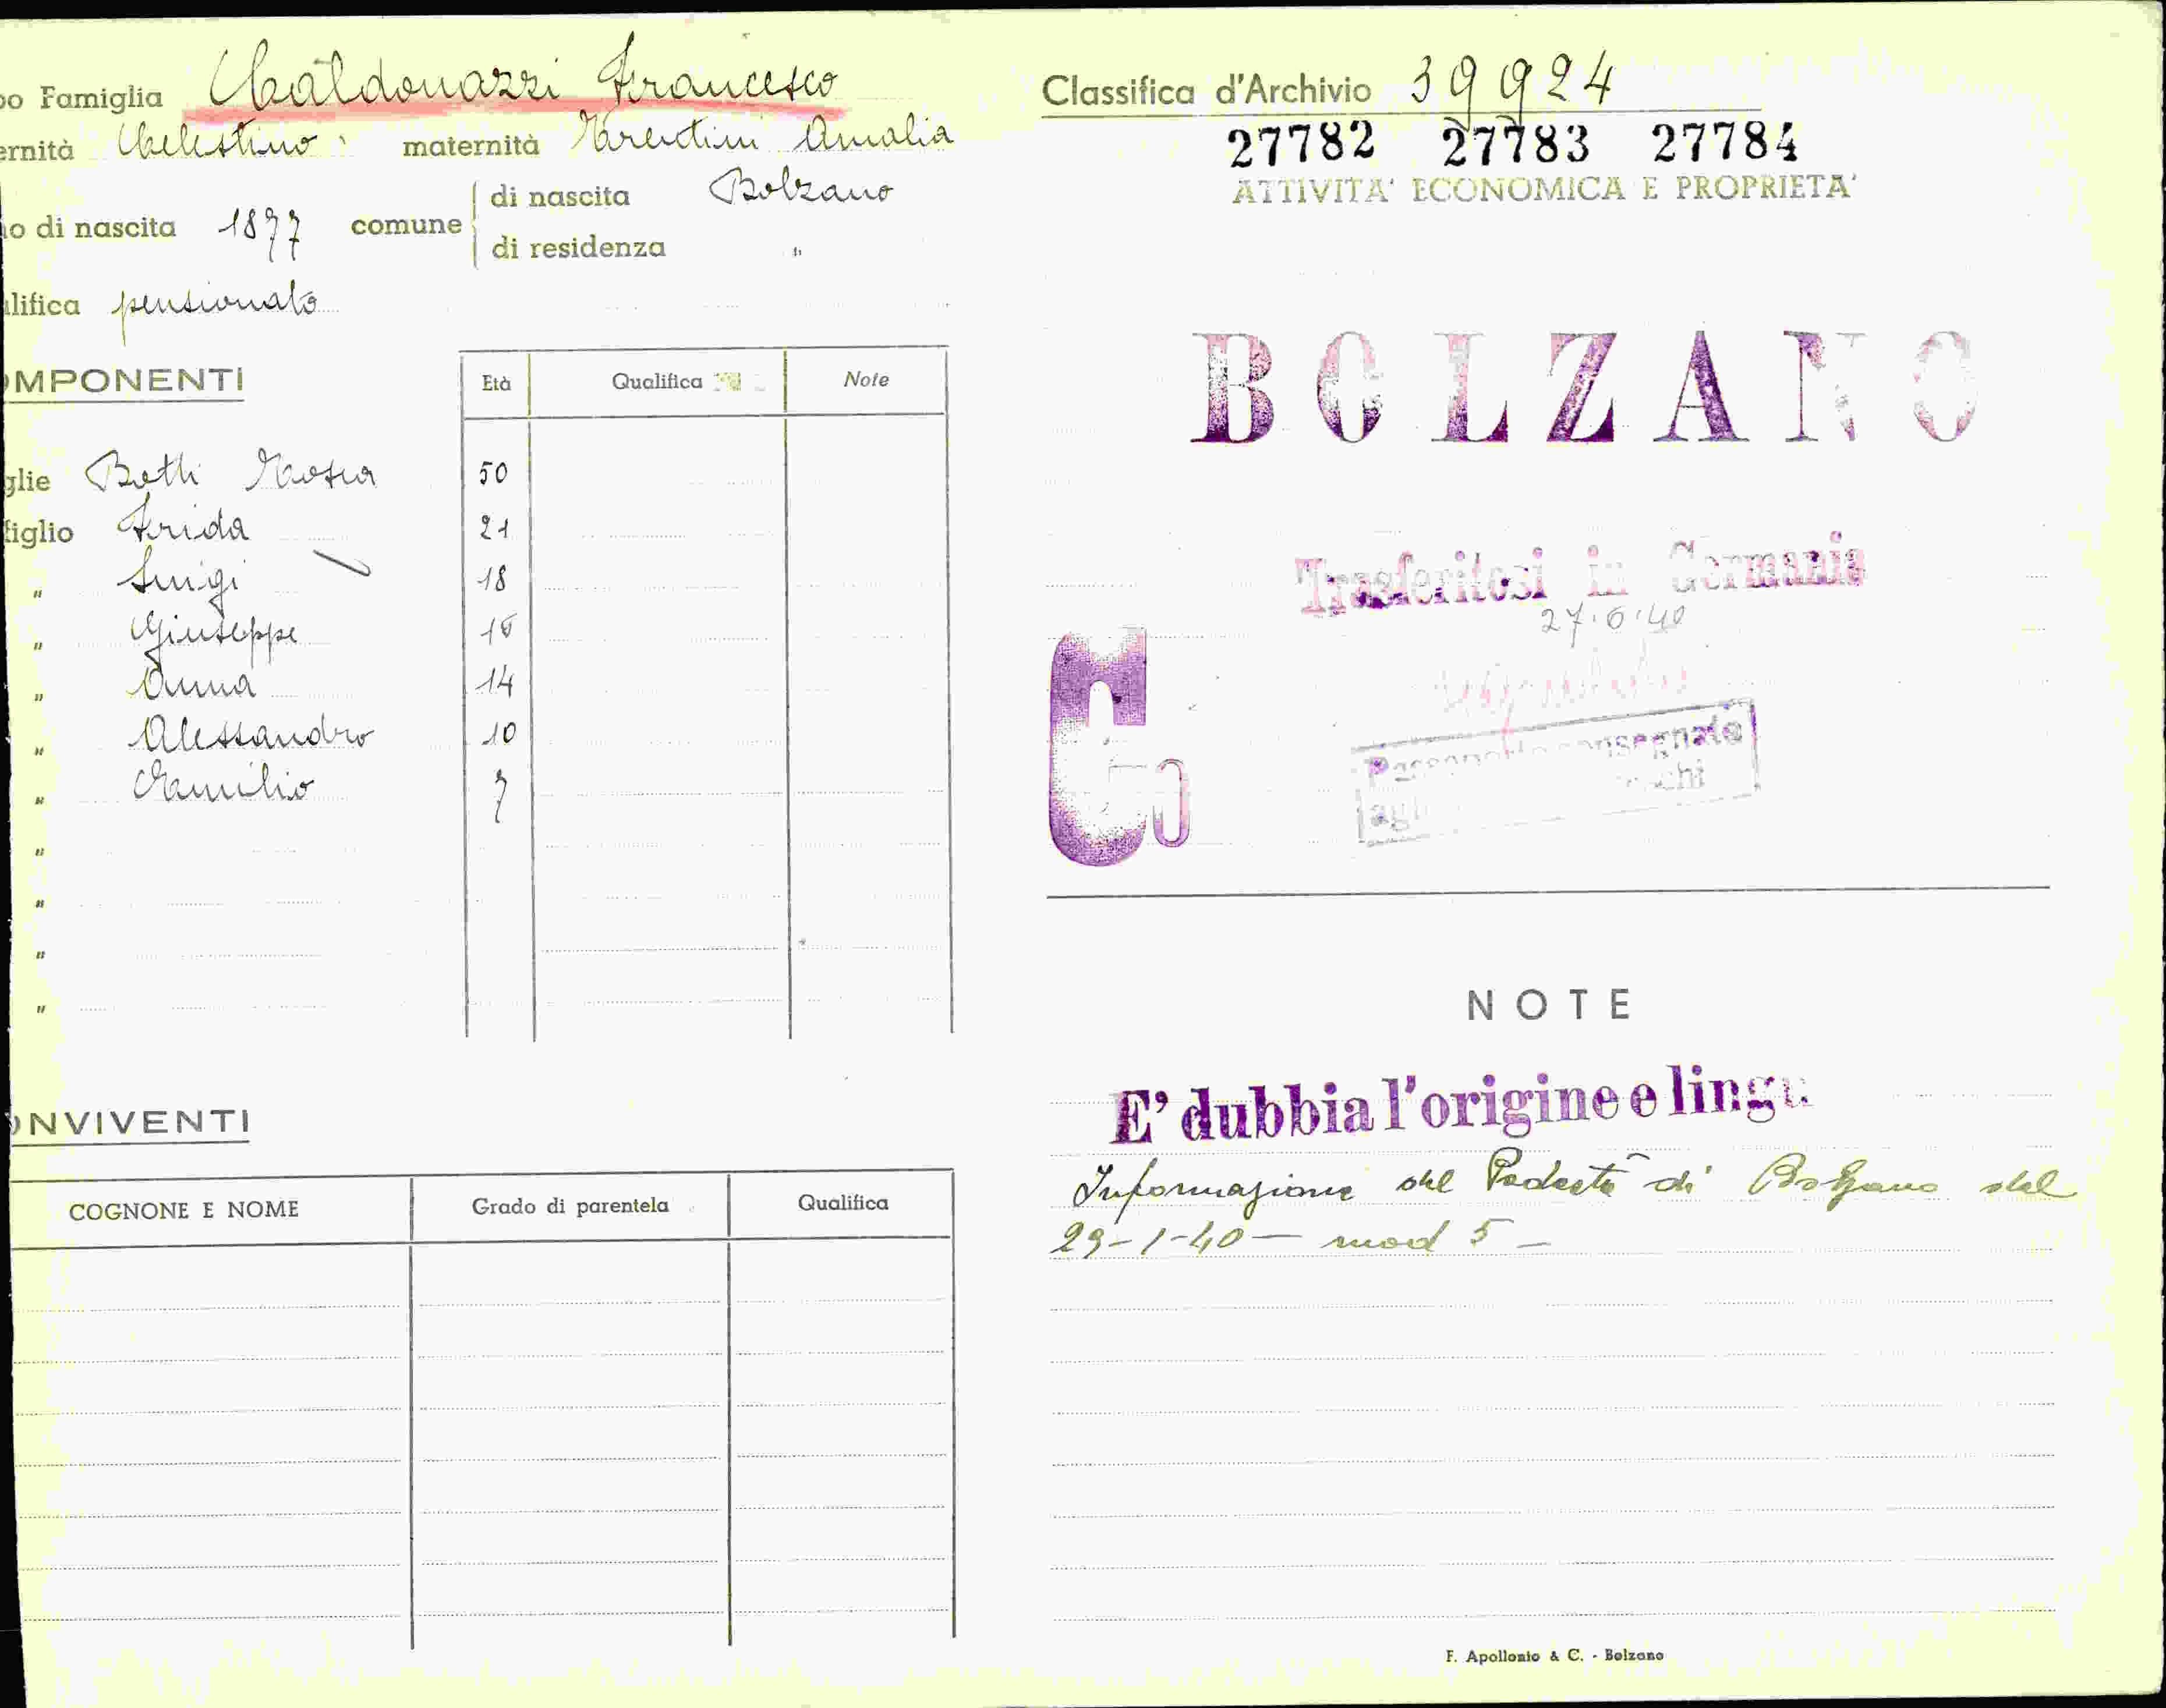 po Famiglia Caldonazzi Francesco
ernità Celestino maternità Trentini Amalia
o di nascita 1877 comune di nascita Bolzano
di residenza "
lifica pensionato
OMPONENTI
Età Qualifica Note
glie Betti Maria 50
figlio Frida 21
" Luigi 18
" Giuseppe 16
" Anna 14
" Alessandro 10
" Camilio 7
"
"
"
"
ONVIVENTI
COGNONE E NOME Grado di parentela Qualifica
Classifica d'Archivio 39924
27782 27783 27784
ATTIVITA' ECONOMICA E PROPRIETA'
BOLZANO
Trasferitosi in Germania
27.6.40
C
Passaporto consegnato
NOTE
E' dubbia l'origine e lingu
Informazione del Podestà di Bolzano del
29-1-40 — mod 5 —
F. Apollonio & C. - Bolzano